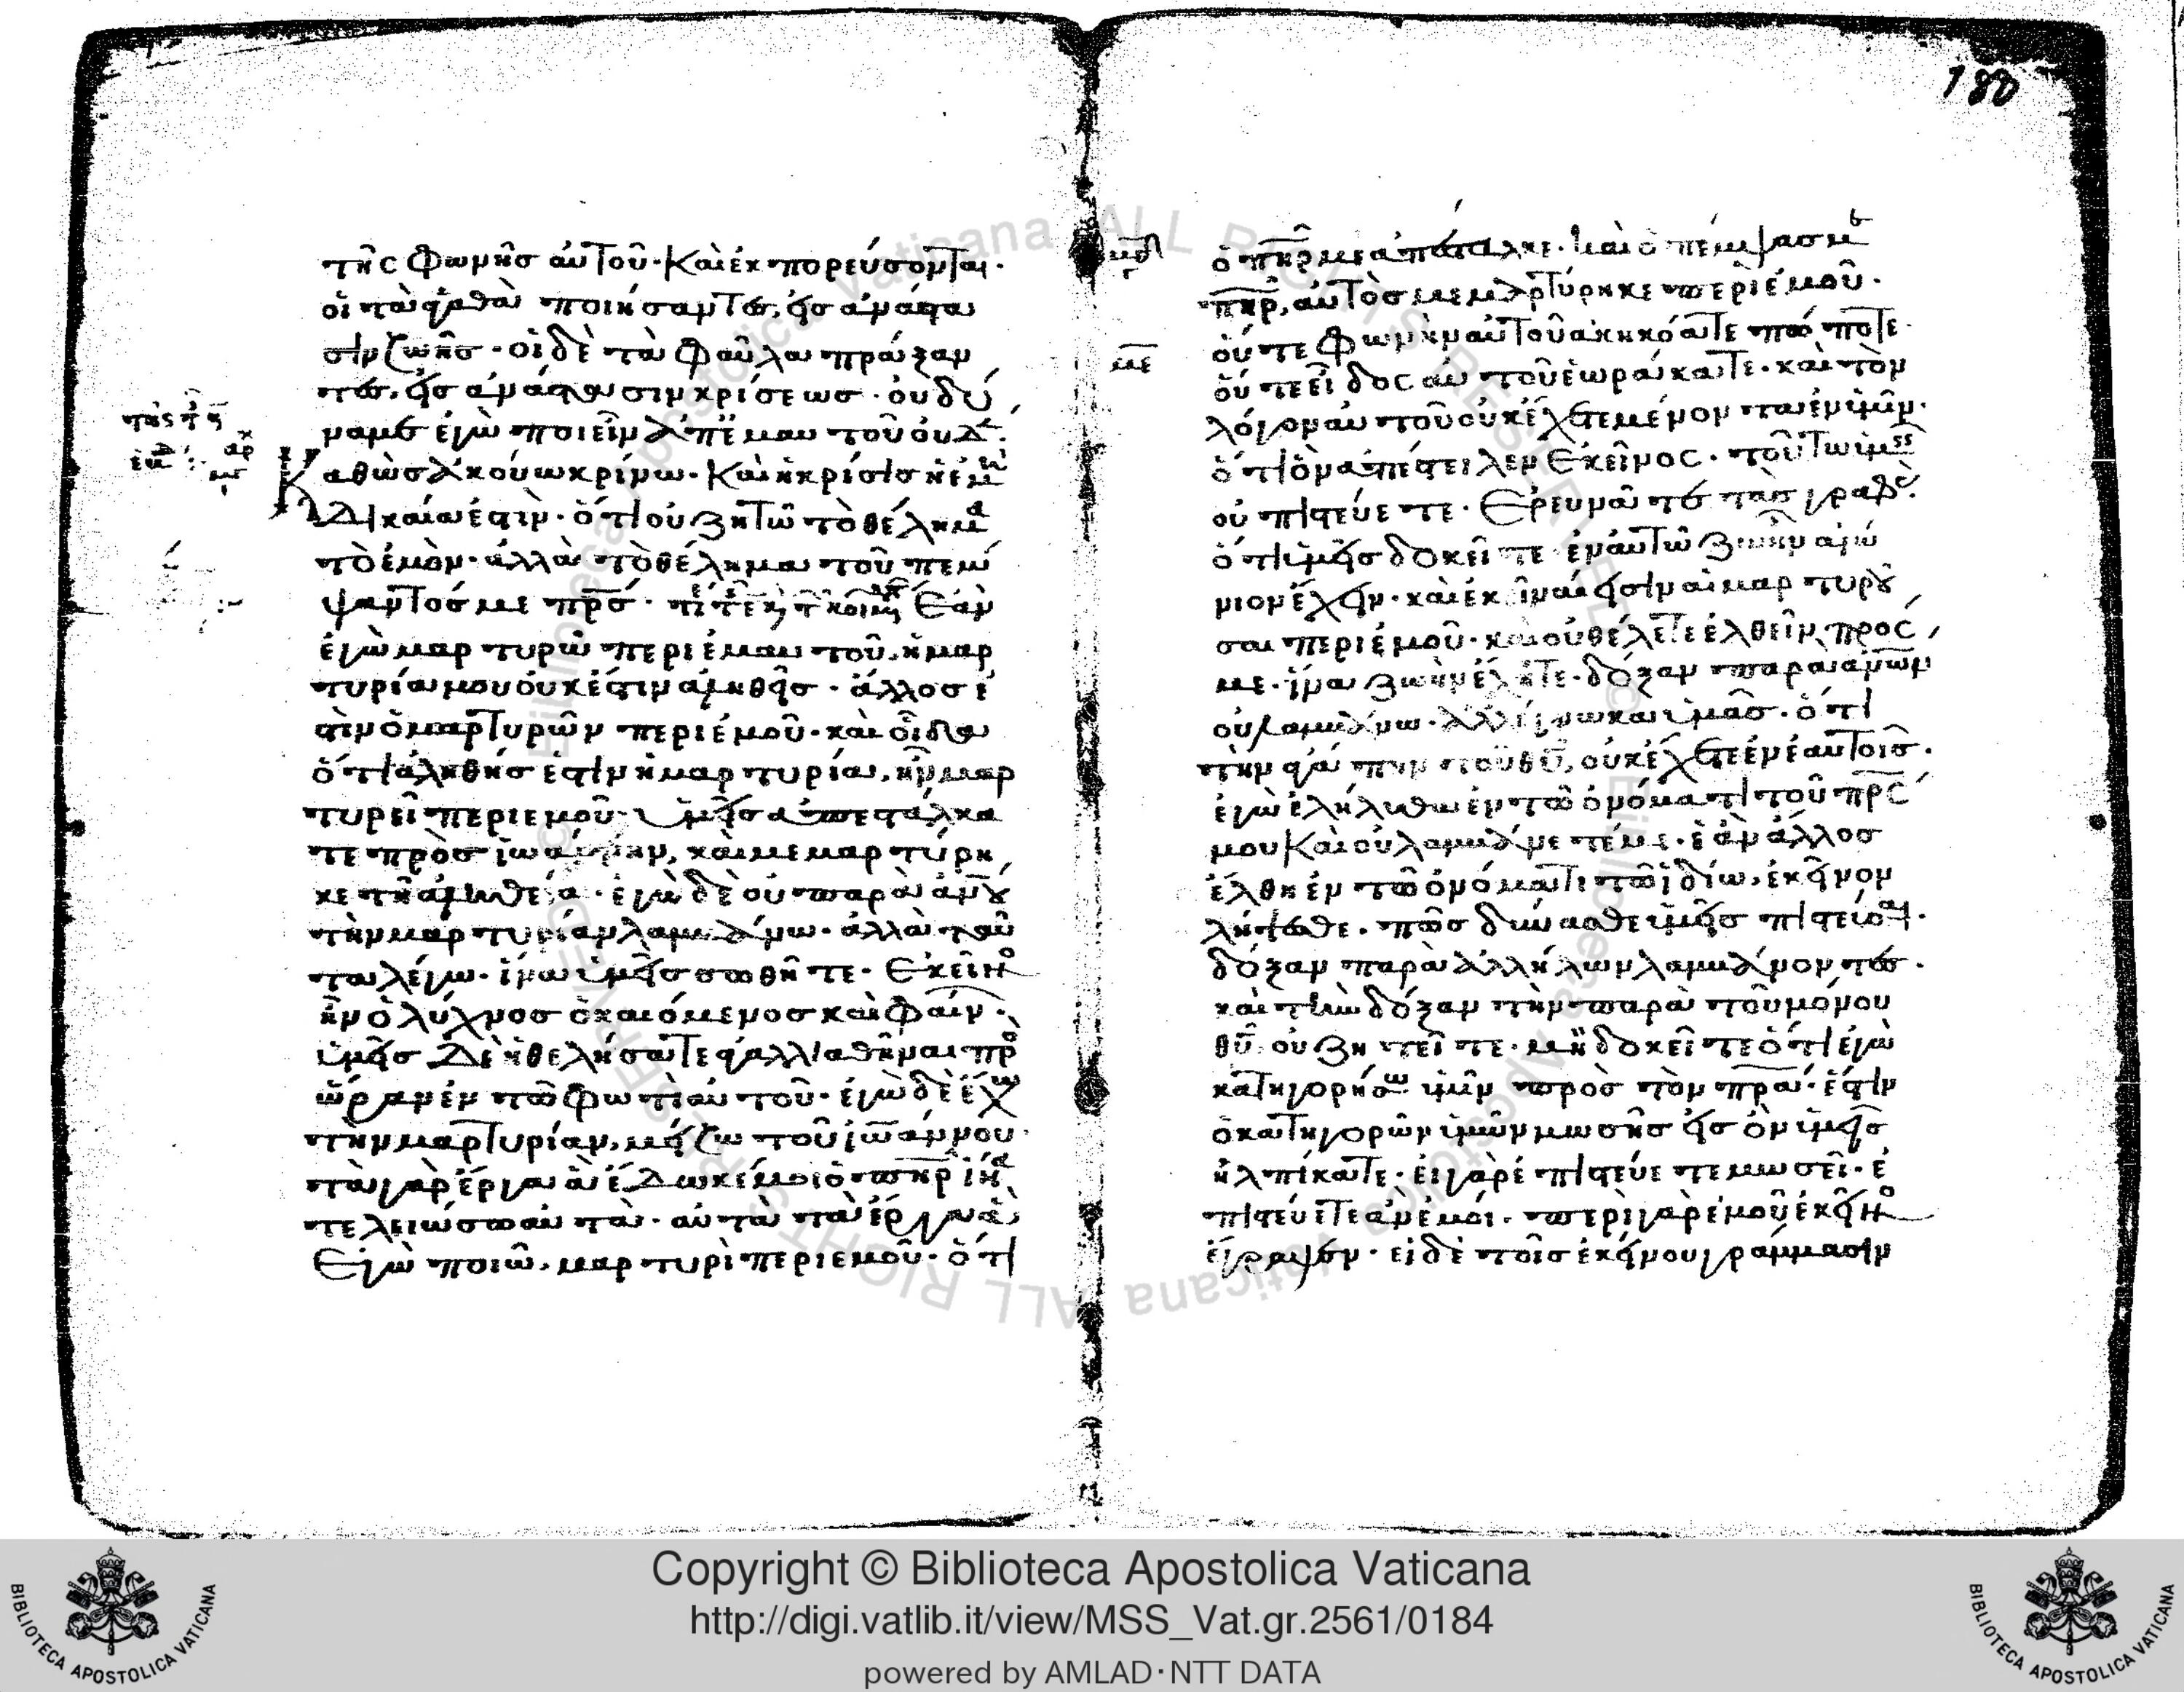 της φωνῆσ αὐτοῦ· Καὶ ἐκπορεύσονται·
οἱ τὰ ἀγαθὰ ποιήσαντεσ, εἰσ ἀνάστα
σιν ζωῆσ· οἱ δὲ τὰ φαῦλα πράξαν
τεσ, εἰσ ἀνάστασιν κρίσεωσ· οὐ δύ
ναμαι ἐγὼ ποιεῖν ἀπ' ἐμαυτοῦ οὐδ
Καθὼσ ἀκούω κρίνω· Καὶ ἡ κρίσισ ἡ ἐμ
Δικαία ἐστὶν· ὅτι οὐ ζητῶ τὸ θέλημ
τὸ ἐμὸν· ἀλλὰ τὸ θέλημα τοῦ πέμ
ψαντοσ με πρσ· Ἐὰν
ἐγὼ μαρτυρῶ περὶ ἐμαυτοῦ, ἡ μαρ
τυρία μου οὐκ ἔστιν ἀληθὴσ· ἄλλοσ ἐ
στὶν ὁ μαρτυρῶν περὶ ἐμοῦ· καὶ οἶδα
ὅτι ἀληθήσ ἐστιν ἡ μαρτυρία, ἣν μαρ
τυρεῖ περὶ ἐμοῦ· ὑμεῖσ ἀπεστάλκα
τε πρὸσ ἰωάννην, καὶ μεμαρτύρη
κε τῆ ἀληθεία· ἐγὼ δὲ οὐ παρὰ ανου
τὴν μαρτυρίαν λαμβάνω· ἀλλὰ ταῦ
τα λέγω· ἵνα ὑμεῖσ σωθῆτε· Ἐκεῖν
ἦν ὁ λύχνοσ ὁ καιόμενοσ καὶ φαίν
ὑμεῖσ Δὲ ἠθελήσατε ἀγαλλιαθῆναι πρ
ὥραν ἐν τῶ φωτὶ αὐτοῦ· ἐγὼ δὲ ἔχω
τὴν μαρτυρίαν, μείζω τοῦ ἰωάννου·
τὰ γὰρ ἔργα ἃ ἔδωκέ μοι ὁ πηρ ἵν
τελειώσω αὐτὰ· αὐτὰ τὰ ἔργα ἃ
Ἐγὼ ποιῶ, μαρτυρὶ περὶ ἐμοῦ· ὅτι
188
ὁ πηρ με ἀπέσταλκε· Καὶ ὁ πέμψασ μ
πηρ, αὐτὸσ μεμαρτύρηκε περὶ ἐμοῦ·
οὔτε φωνὴν αὐτοῦ ἀκηκόατε πώποτε·
οὔτε εἶδος αὐτοῦ ἑωράκατε· καὶ τὸν
λόγον αὐτοῦ οὐκ ἔχετε μένον τα ἐν ὑμῖν·
ὅτι ὃν ἀπέστειλεν Ἐκεῖνος· τούτω ὑμεῖς
οὐ πιστεύετε· Ἐρευνᾶτε τὰσ γραφ
ὅτι ὑμεῖσ δοκεῖτε ἐν αὐτῶ ζωὴν αἰώ
νιον ἔχειν· καὶ ἐκεῖναί εἰσιν αἱ μαρτυροῦ
σαι περὶ ἐμοῦ· καὶ οὐ θέλετε ἐλθεῖν πρός
με· ἵνα ζωὴν ἔχητε· δόξαν παρὰ ανων
οὐ λαμβάνω· ἀλλ' ἔγνωκα ὑμᾶσ· ὅτι
τὴν ἀγάπην τοῦ θυ, οὐκ ἔχετε ἐν ἑαυτοῖσ·
ἐγὼ ἐλήλυθα ἐν τῶ ὀνόματι τοῦ πρς
μου Καὶ οὐ λαμβάνετέ με· ἐὰν ἄλλοσ
ἔλθη ἐν τῶ ὀνόματι τῶ ἰδίω, ἐκεῖνον
λήψεσθε· πῶσ δύνασθε ὑμεῖσ πιστεῦσαι·
δόξαν παρὰ ἀλλήλων λαμβάνοντεσ·
καὶ τὴν δόξαν τὴν παρὰ τοῦ μόνου
θυ οὐ ζητεῖτε· μὴ δοκεῖτε ὅτι ἐγὼ
κατηγορήσω ὑμῶν πρὸσ τὸν πρα· ἔστιν
ὁ κατηγορῶν ὑμῶν μωσῆσ εἰσ ὃν ὑμεῖσ
ἠλπίκατε· εἰ γὰρ ἐπιστεύετε μωσεῖ· ἐ
πιστεύετε ἂν ἐμοί· περὶ γὰρ ἐμοῦ ἐκεῖν
ἔγραψεν· εἰ δὲ τοῖσ ἐκείνου γράμμασιν
Copyright © Biblioteca Apostolica Vaticana
http://digi.vatlib.it/view/MSS_Vat.gr.2561/0184
powered by AMLAD·NTT DATA
BIBLIOTECA APOSTOLICA VATICANA
BIBLIOTECA APOSTOLICA VATICANA